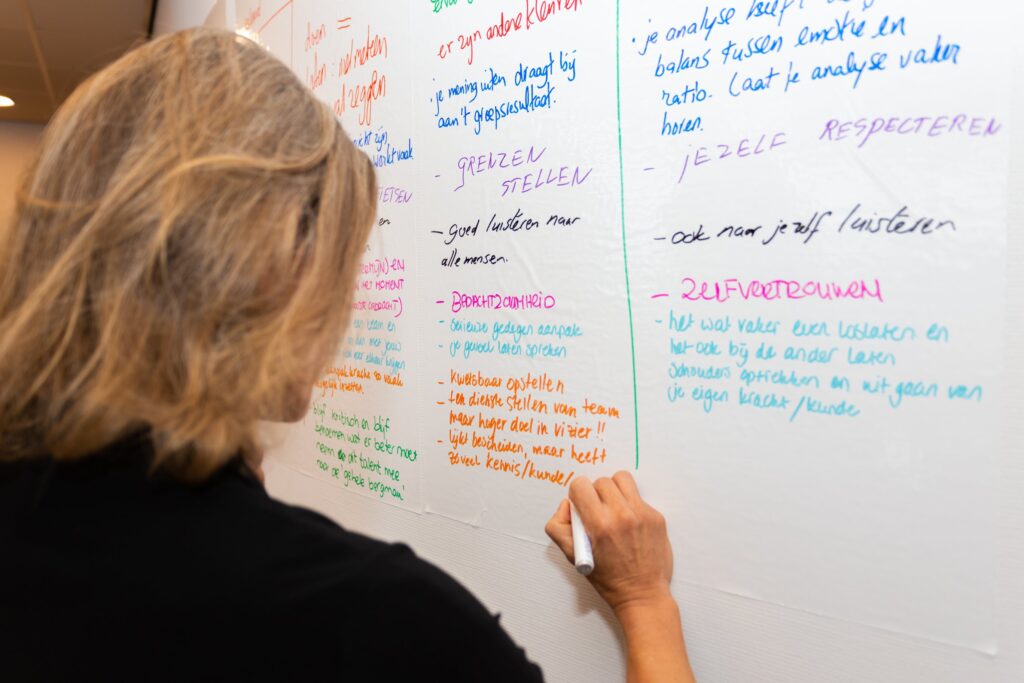 doen =
nel meten
al zeggen
icht zijn
werkt vaak
FIETSEN
en
MIJN) EN
HET MOMENT
een team en
met jouw
elkaar krijgen
kracht zo vaak
mogelijk inzetten.
blijf kritisch en blijf
benoemen wat er beter moet
neem dit talent mee
naar de 'gehele bergman'
er zijn andere kleuren
• je mening uiten draagt bij
aan 't groepsresultaat.
- GRENZEN
STELLEN
- goed luisteren naar
alle mensen.
- BEDACHTZAAMHEID
- serieuze gedegen aanpak
- je gevoel laten spreken
- kwetsbaar opstellen
- ten dienste stellen van team
maar hoger doel in vizier !!
- lijkt bescheiden, maar heeft
zoveel kennis/kunde/
• je analyse heeft
balans tussen emotie en
ratio. Laat je analyse vaker
horen.
- JEZELF RESPECTEREN
- ook naar jezelf luisteren
- ZELFVERTROUWEN
- het wat vaker even loslaten en
het ook bij de ander laten
schouders optrekken en uit gaan van
je eigen kracht/kunde